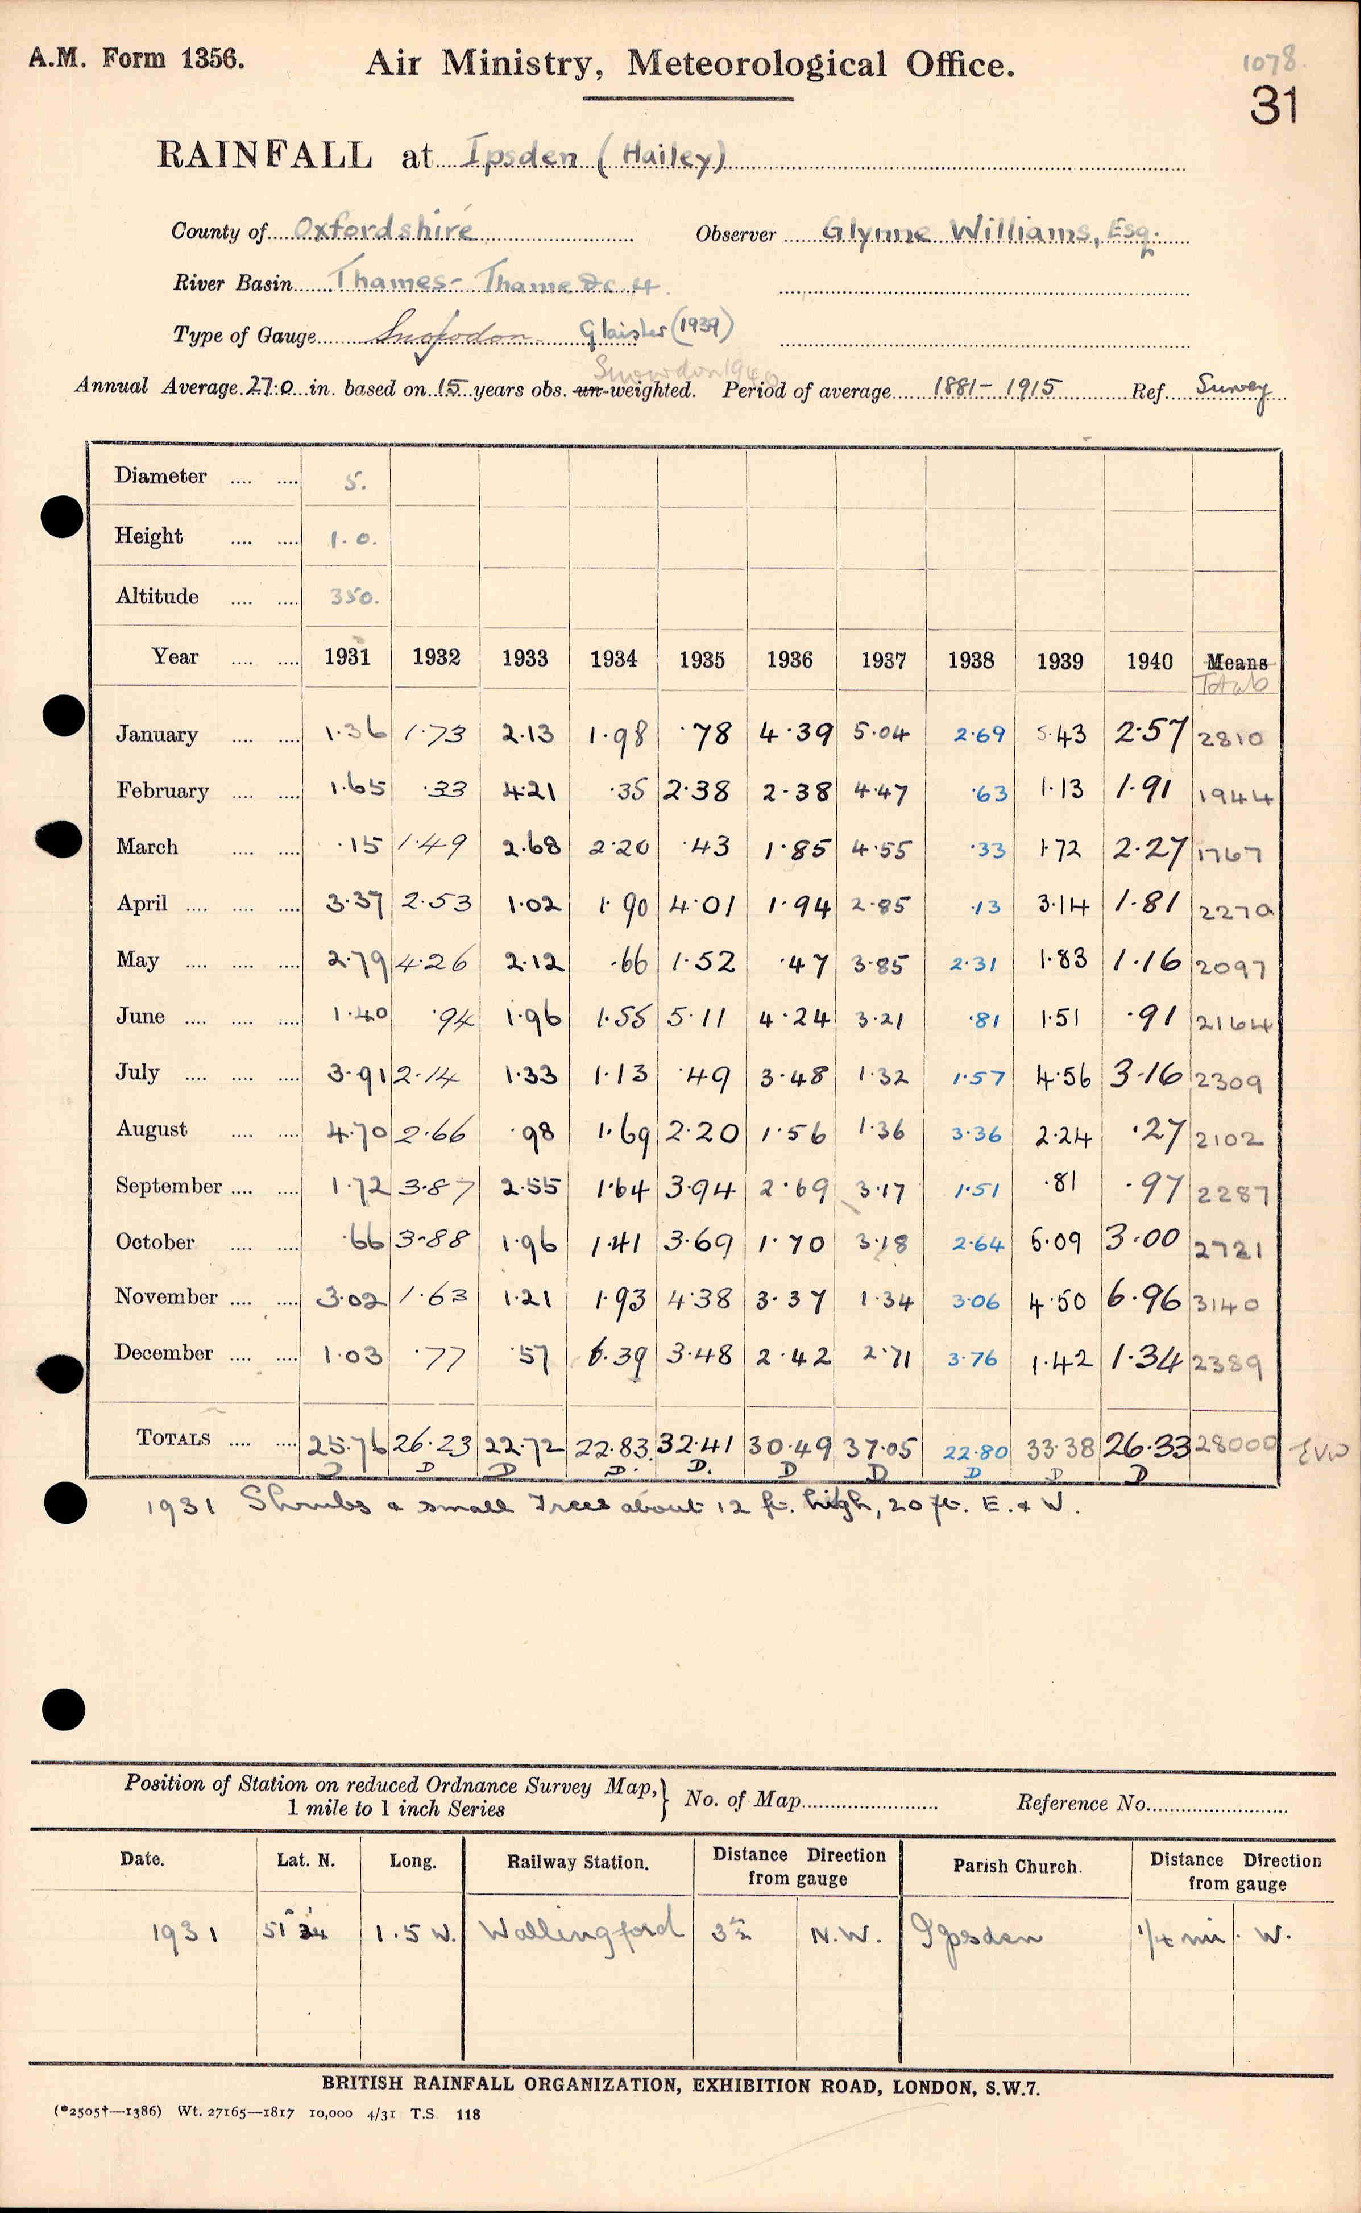 A.M. Form 1356.
Air Ministry, Meteorological Office.
1078.
31
RAINFALL at Ipsden (Hailey)
County of Oxfordshire Observer Glynne Williams, Esq.
River Basin Thames - Thame &c 4.
Type of Gauge Snowdon Glaisher (1939)
Snowdon 1940
Annual Average 27.0 in. based on 15 years obs. un-weighted. Period of average 1881-1915 Ref. Survey
Diameter 5.
Height 1.0.
Altitude 350.
Year 1931 1932 1933 1934 1935 1936 1937 1938 1939 1940 Means
Totals
January 1.36 1.73 2.13 1.98 .78 4.39 5.04 2.69 5.43 2.57 2810
February 1.65 .33 4.21 .35 2.38 2.38 4.47 .63 1.13 1.91 1944
March .15 1.49 2.68 2.20 .43 1.85 4.55 .33 1.72 2.27 1767
April 3.37 2.53 1.02 1.90 4.01 1.94 2.85 .13 3.14 1.81 2270
May 2.79 4.26 2.12 .66 1.52 .47 3.85 2.31 1.83 1.16 2097
June 1.40 .94 1.96 1.55 5.11 4.24 3.21 .81 1.51 .91 2164
July 3.91 2.14 1.33 1.13 .49 3.48 1.32 1.57 4.56 3.16 2309
August 4.70 2.66 .98 1.69 2.20 1.56 1.36 3.36 2.24 .27 2102
September 1.72 3.87 2.55 1.64 3.94 2.69 3.17 1.51 .81 .97 2287
October .66 3.88 1.96 1.41 3.69 1.70 3.18 2.64 5.09 3.00 2721
November 3.02 1.63 1.21 1.93 4.38 3.37 1.34 3.06 4.50 6.96 3140
December 1.03 .77 .57 6.39 3.48 2.42 2.71 3.76 1.42 1.34 2389
TOTALS 25.76 26.23 22.72 22.83 32.41 30.49 37.05 22.80 33.38 26.33 28000
D D D D. D. D D D D D
1931 Shrubs & small Trees about 12 ft. high, 20 ft. E. & W.
Position of Station on reduced Ordnance Survey Map,} No. of Map Reference No.
1 mile to 1 inch Series
Date. Lat. N. Long. Railway Station. Distance Direction from gauge Parish Church. Distance Direction from gauge
1931 51° 34' 1.5 W. Wallingford 3½ N.W. Ipsden 1/4 mi. W.
BRITISH RAINFALL ORGANIZATION, EXHIBITION ROAD, LONDON, S.W.7.
(*2505†—1386) Wt. 27165—1817 10,000 4/31 T.S. 118